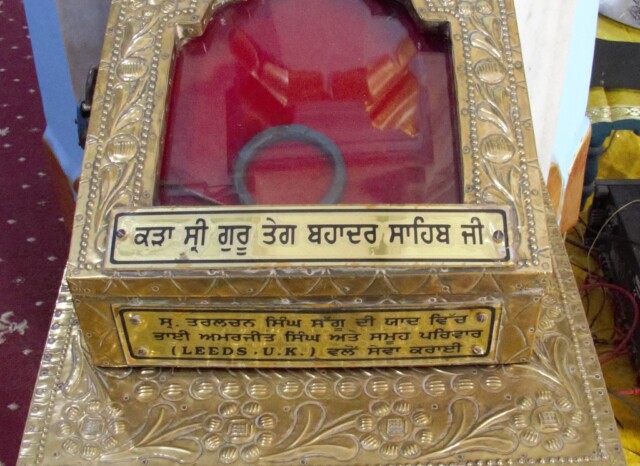 ਕੜਾ ਸ੍ਰੀ ਗੁਰੂ ਤੇਗ ਬਹਾਦਰ ਸਾਹਿਬ ਜੀ
ਸ੍ਰ. ਤਰਲਚਨ ਸਿੰਘ ਸੱਗੂ ਦੀ ਯਾਦ ਵਿੱਚ
ਭਾਈ ਅਮਰਜੀਤ ਸਿੰਘ ਅਤੇ ਸਮੂਹ ਪਰਿਵਾਰ
(LEEDS.U.K.) ਵਲੋਂ ਸੇਵਾ ਕਰਾਈ